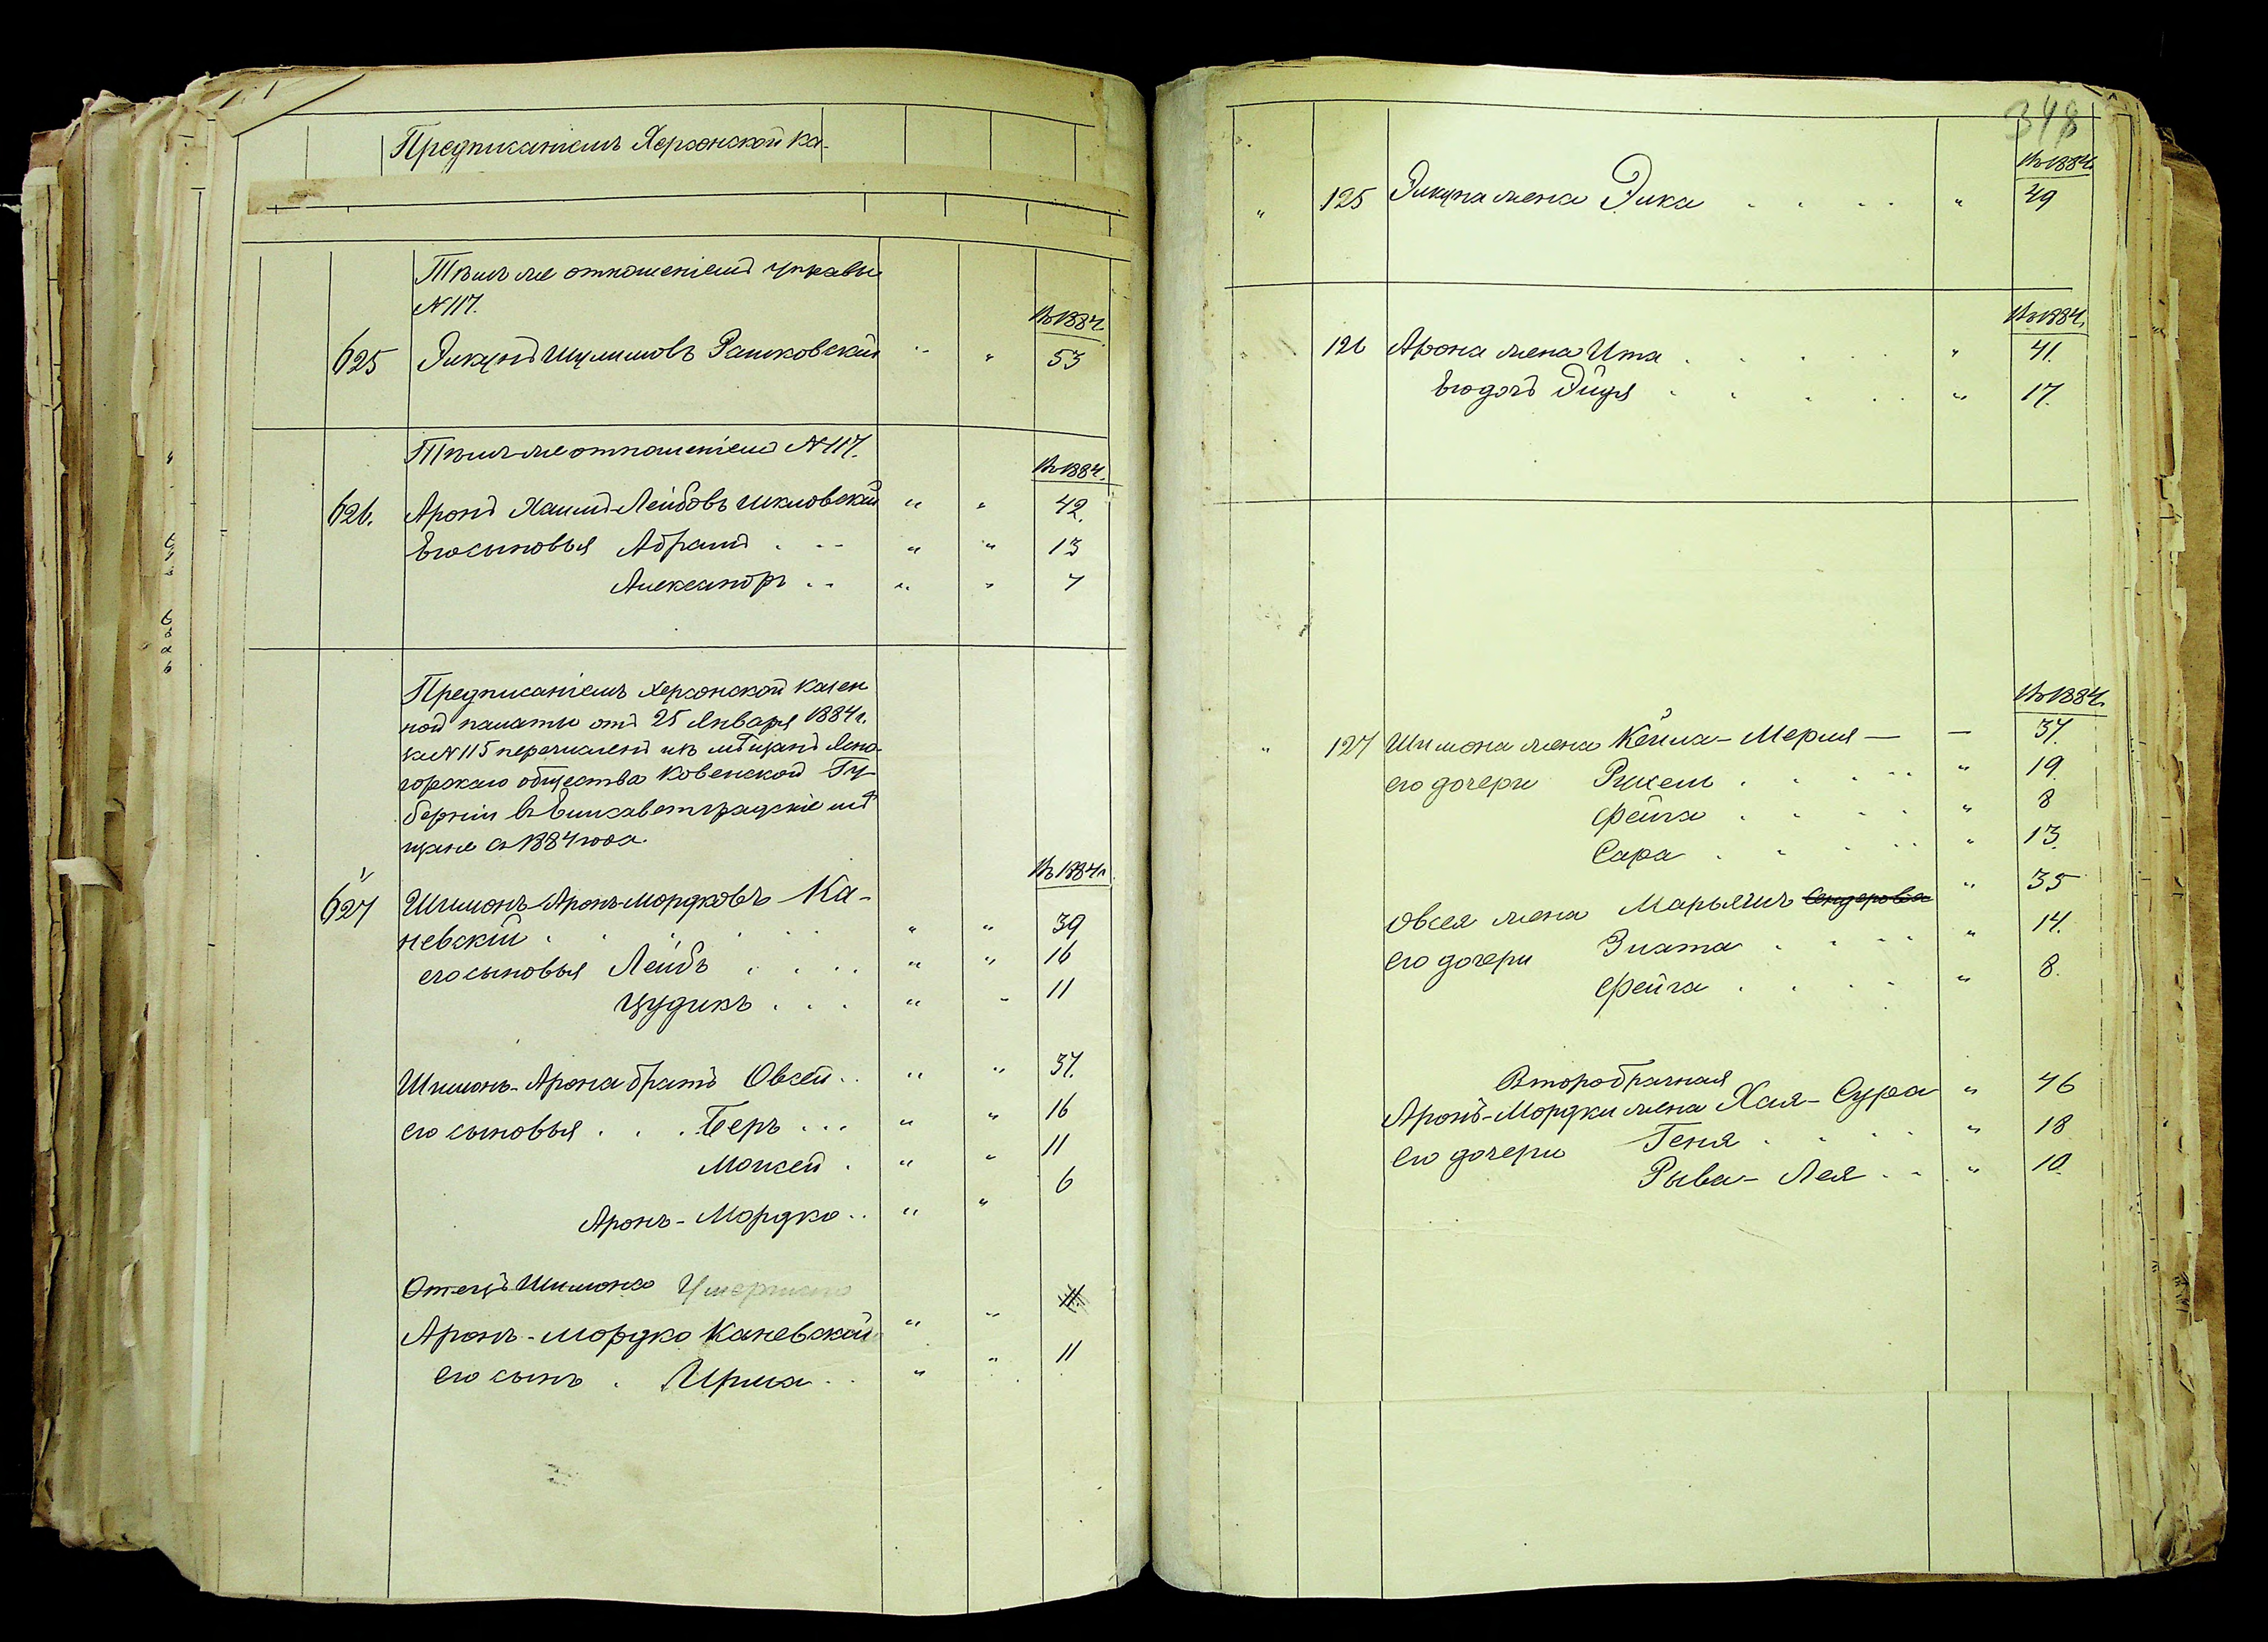 Предписаніемъ Херсонской Ка-
Тѣмъ же отношеніемъ управы
№ 117.
Въ 1884 г.
625 Янкунъ Шулимовъ Рашковскій " " 53
Тѣмъ-же отношеніемъ № 117.
Въ 1884 г.
626. Аронъ Хаимъ-Лейбовъ Шкловскій " " 42.
Его сыновья Абрамъ . . . " " 13
Александръ . . " " 7
Предписаніемъ Херсонской Казен
ной палаты отъ 25 Января 1884 г.
за № 115 перечисленъ изъ мѣщанъ Ясно-
горскаго общества Ковенской Гу-
берніи въ Елисаветградскіе мѣ
щане съ 1884 года.
Въ 1884 г.
627 Шимонъ-Аронъ-Мордковъ Ка-
невскій . . . . . " " 39
его сыновья Лейбъ . . . . " " 16
Цудикъ . . . " " 11
Шимонъ-Арона братъ Овсей . . " " 37.
его сыновья . . . Беръ . . . " " 16
Моисей . " " 11
Аронъ-Мордко . . " " 6
Отецъ Шимона
Аронъ-Мордко Каневскій " "
его сынъ . Ирма . . " " 11
348
Въ 1884 г.
" 125 жена Эика . . . . " 49
Въ 1884 г.
" 126 Арона жена Ита . . . . . " 41.
Его дочь Эйдя . . . . . " 17.
Въ 1884 г.
" 127 Шимона жена Кейла-Мерля — — 37.
его дочери Рухель . . . . . " 19.
Фейга . . . . " 8
Сара . . . . . " 13.
Овсея жена Марьяшъ Сендеровна " 35
его дочери Злата . . . . . " 14.
Фейга . . . . " 8.
Второбрачная
Аронъ-Мордки жена Хая-Сура " 46
его дочери Геня . . . . " 18
Рыва-Лея . . " 10.